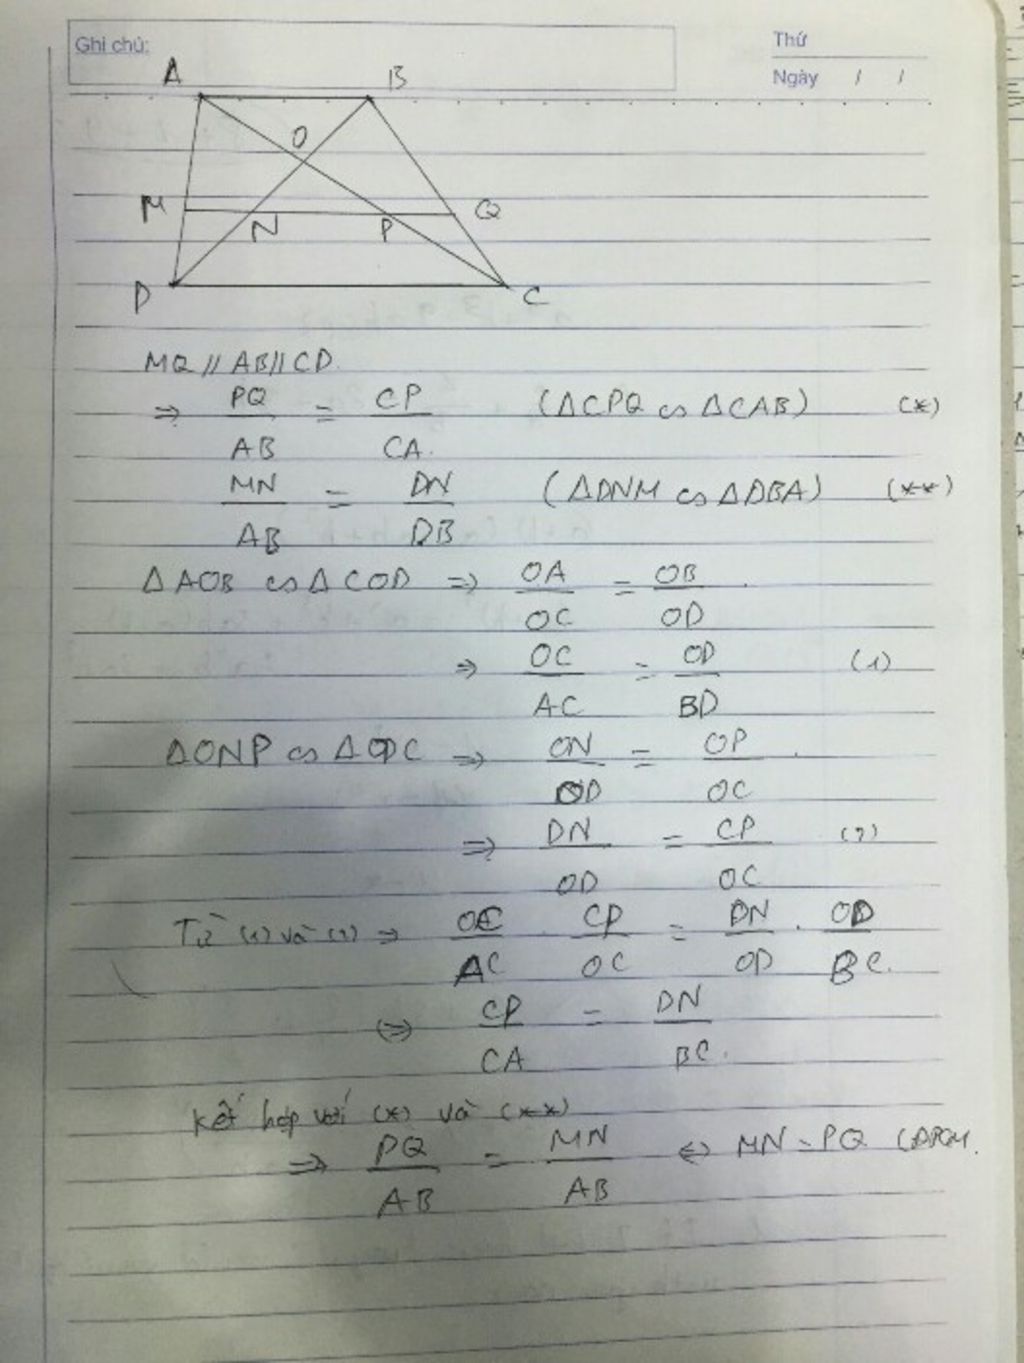 Ghi chú:
Thứ
Ngày / /
A B
O
M N P Q
D C
MQ // AB // CD.
⇒ PQ/AB = CP/CA (ΔCPQ ∽ ΔCAB) (*)
MN/AB = DN/DB (ΔDNM ∽ ΔDBA) (**)
ΔAOB ∽ ΔCOD ⇒ OA/OC = OB/OD.
⇒ OC/AC = OD/BD (1)
ΔONP ∽ ΔODC ⇒ ON/OD = OP/OC.
⇒ DN/OD = CP/OC (2)
Từ (1) và (2) ⇒ OC/AC . CP/OC = DN/OD . OD/BC.
⇔ CP/CA = DN/BC.
Kết hợp với (*) và (**)
⇒ PQ/AB = MN/AB ⇔ MN = PQ (ĐPCM.